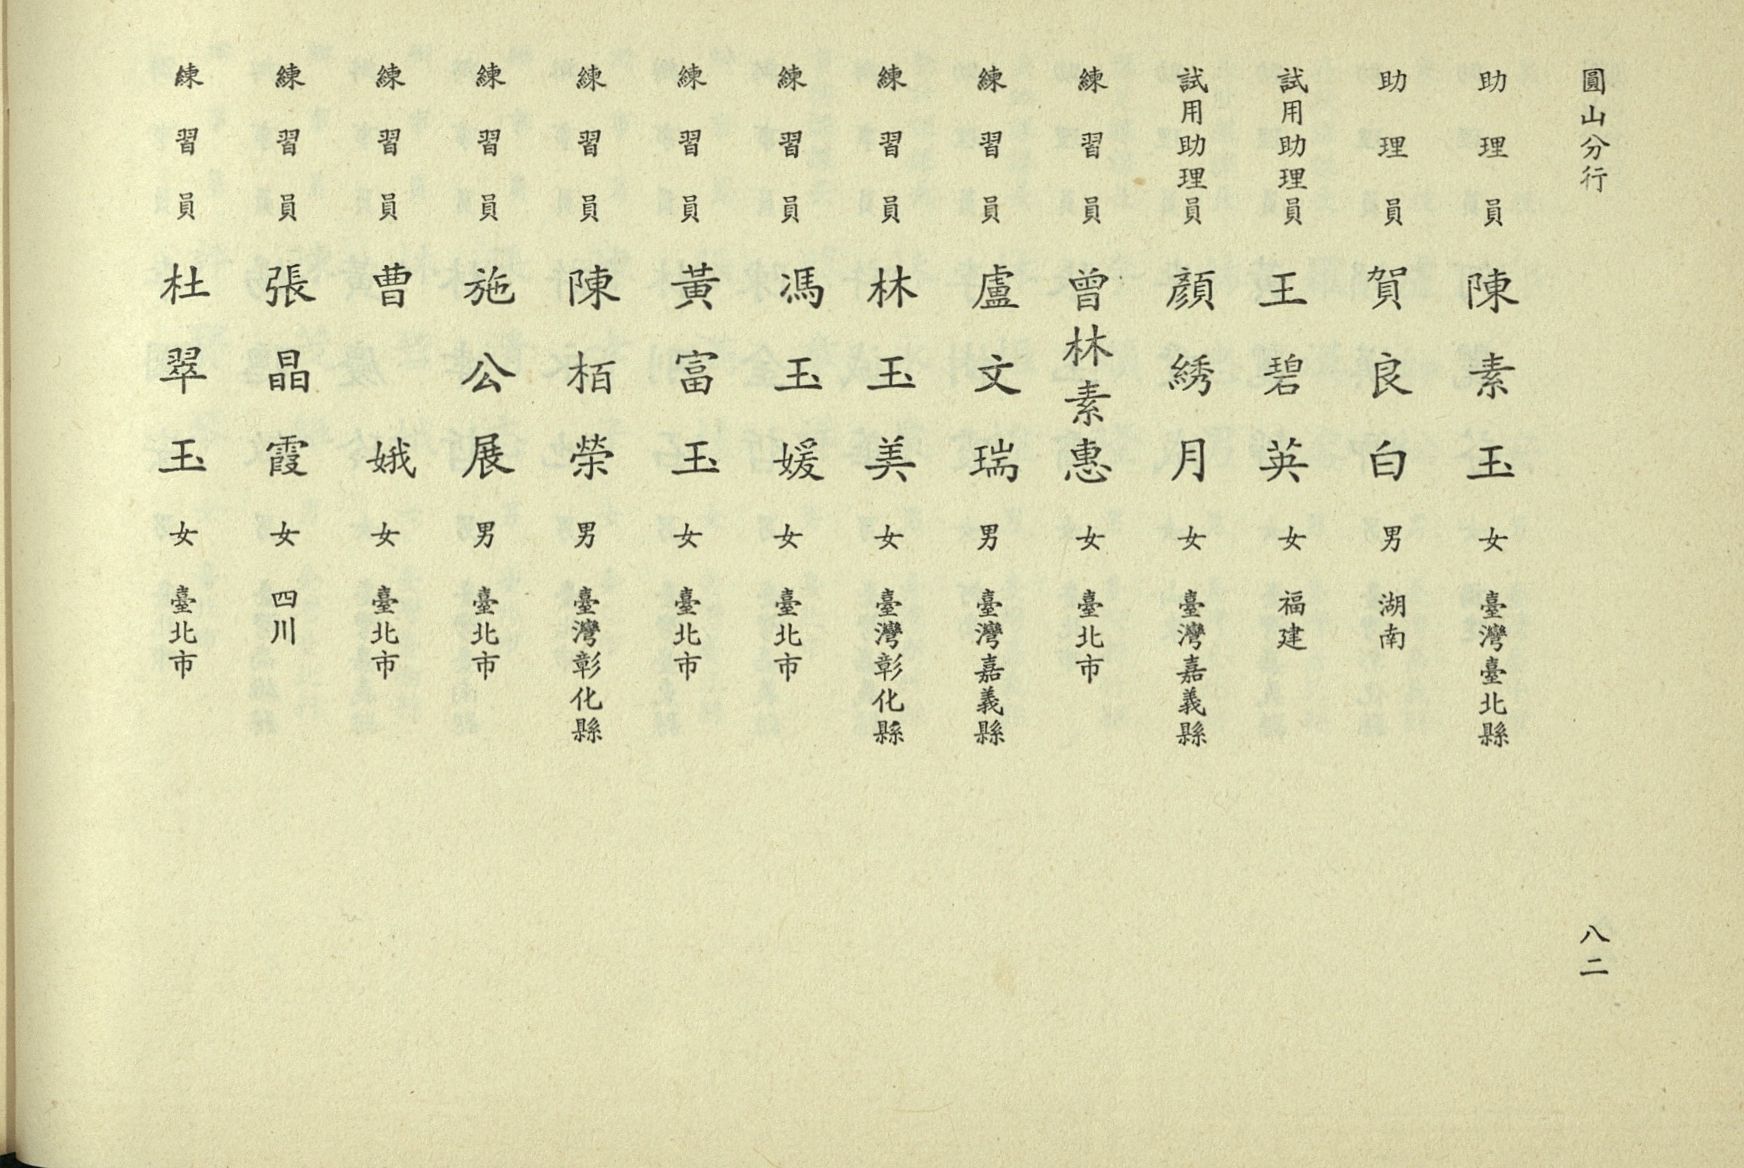 圓山分行
八二
助理員 陳素玉 女 臺灣臺北縣
助理員 賀良白 男 湖南
試用助理員 王碧英 女 福建
試用助理員 顏綉月 女 臺灣嘉義縣
練習員 曾林素惠 女 臺北市
練習員 盧文瑞 男 臺灣嘉義縣
練習員 林玉美 女 臺灣彰化縣
練習員 馮玉媛 女 臺北市
練習員 黃富玉 女 臺北市
練習員 陳栢榮 男 臺灣彰化縣
練習員 施公展 男 臺北市
練習員 曹娥 女 臺北市
練習員 張晶霞 女 四川
練習員 杜翠玉 女 臺北市